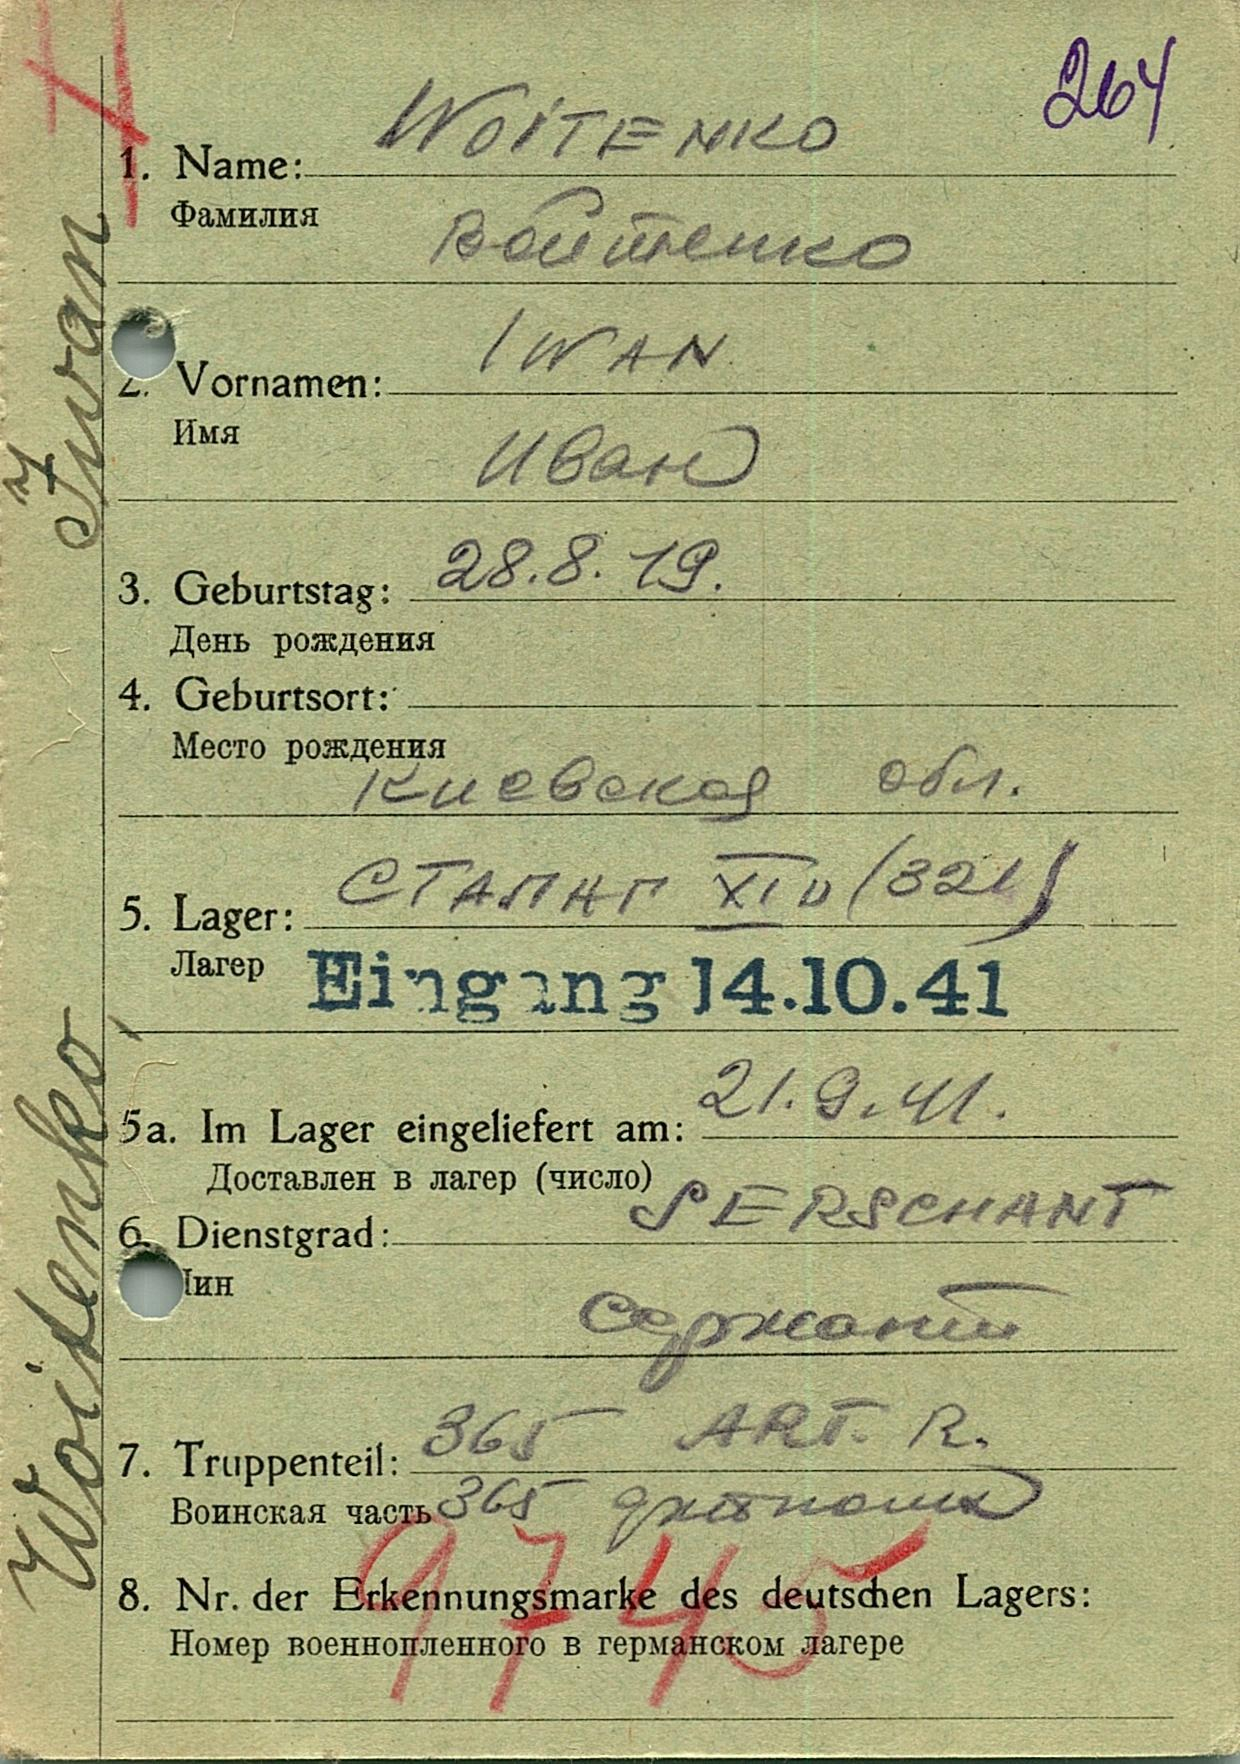 264
WOITENKO
1. Name:
Фамилия
Войтенко
IWAN
2. Vornamen:
Имя
Иван
28.8.19.
3. Geburtstag:
День рождения
4. Geburtsort:
Место рождения
Киевская обл.
СТАЛАГ XI D (321)
5. Lager:
Лагер
Eingang 14.10.41
21.9.41.
5a. Im Lager eingeliefert am:
Доставлен в лагер (число)
SERSCHANT
6. Dienstgrad:
Чин
Сержант
365 ART. R.
7. Truppenteil:
Воинская часть 365
9745
8. Nr. der Erkennungsmarke des deutschen Lagers:
Номер военнопленного в германском лагере
Woitenko, Iwan